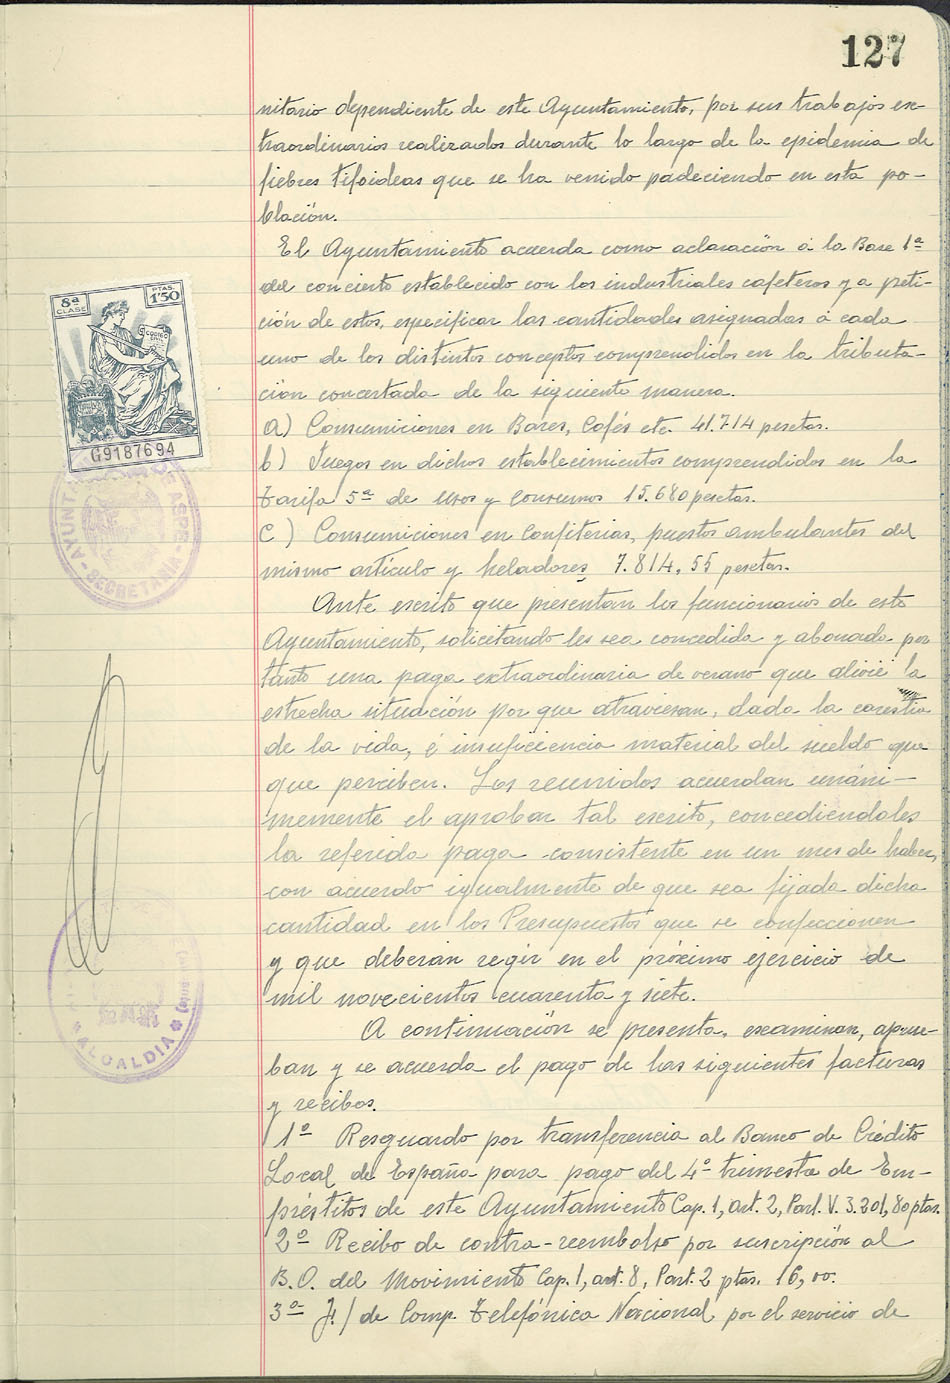 127
nitario dependiente de este Ayuntamiento, por sus trabajos ex-
traordinarios realizados durante lo largo de la epidemia de
fiebres tifoideas que se ha venido padeciendo en esta po-
blación.
El Ayuntamiento acuerda como aclaración á la Base 1ª
del concierto establecido con los industriales cafeteros y a peti-
ción de estos, especificar las cantidades asignadas á cada
uno de los distintos conceptos comprendidos en la tributa-
ción concertada de la siguiente manera.
a) Consumiciones en Bares, Cafés etc. 41.714 pesetas.
b) Juegos en dichos establecimientos comprendidos en la
tarifa 5ª de Usos y Consumos 15.680 pesetas.
c) Consumiciones en Confiterias, puestos ambulantes del
mismo artículo y heladores, 7.814,55 pesetas.
Ante escrito que presentan los funcionarios de este
Ayuntamiento, solicitando les sea concedida y abonada por
tanto una paga extraordinaria de verano que alivié la
estrecha situación por que atraviesan, dada la carestia
de la vida, é insuficiencia material del sueldo que
que perciben. Los reunidos acuerdan unáni-
memente el aprobar tal escrito, concediendoles
la referida paga consistente en un mes de haber,
con acuerdo igualmente de que sea fijada dicha
cantidad en los Presupuestos que se confeccionen
y que deberán regir en el próximo ejercicio de
mil novecientos cuarenta y siete.
A continuación se presenta, examinan, aprue-
ban y se acuerda el pago de las siguientes facturas
y recibos.
1º Resguardo por transferencia al Banco de Crédito
Local de España para pago del 4º trimestre de Em-
préstitos de este Ayuntamiento Cap. 1, art. 2, Part. V. 3.201,80 ptas.
2º Recibo de contra-reembolso por suscripción al
B.O. del Movimiento Cap. 1, art. 8, Part. 2 ptas. 16,00.
3º J./ de Comp. Telefónica Nacional por el servicio de
8ª CLASE
PTAS. 1'50
G9187694
AYUNTA DE ASPE
SECRETARIA
ALCALDIA